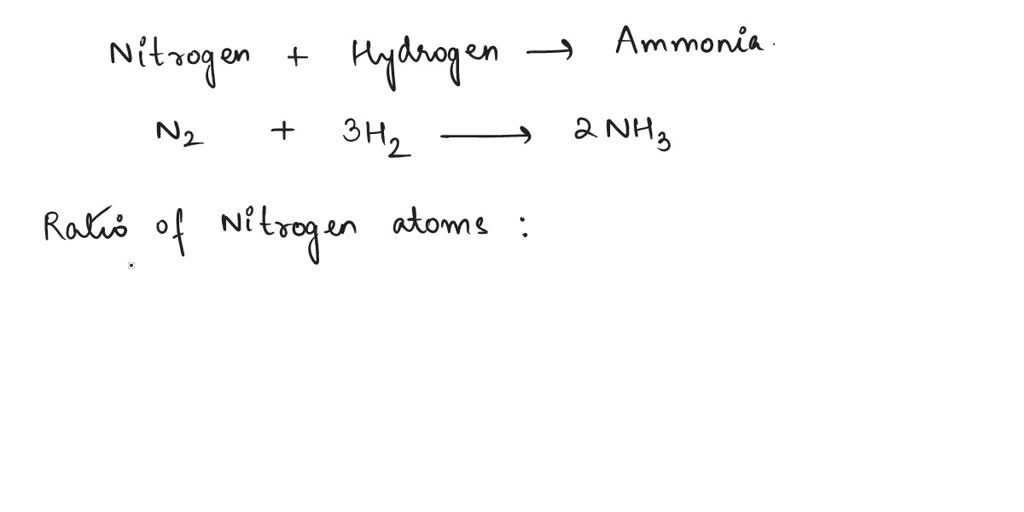 Nitrogen + Hydrogen → Ammonia.
N₂ + 3H₂ → 2NH₃
Ratio of Nitrogen atoms :